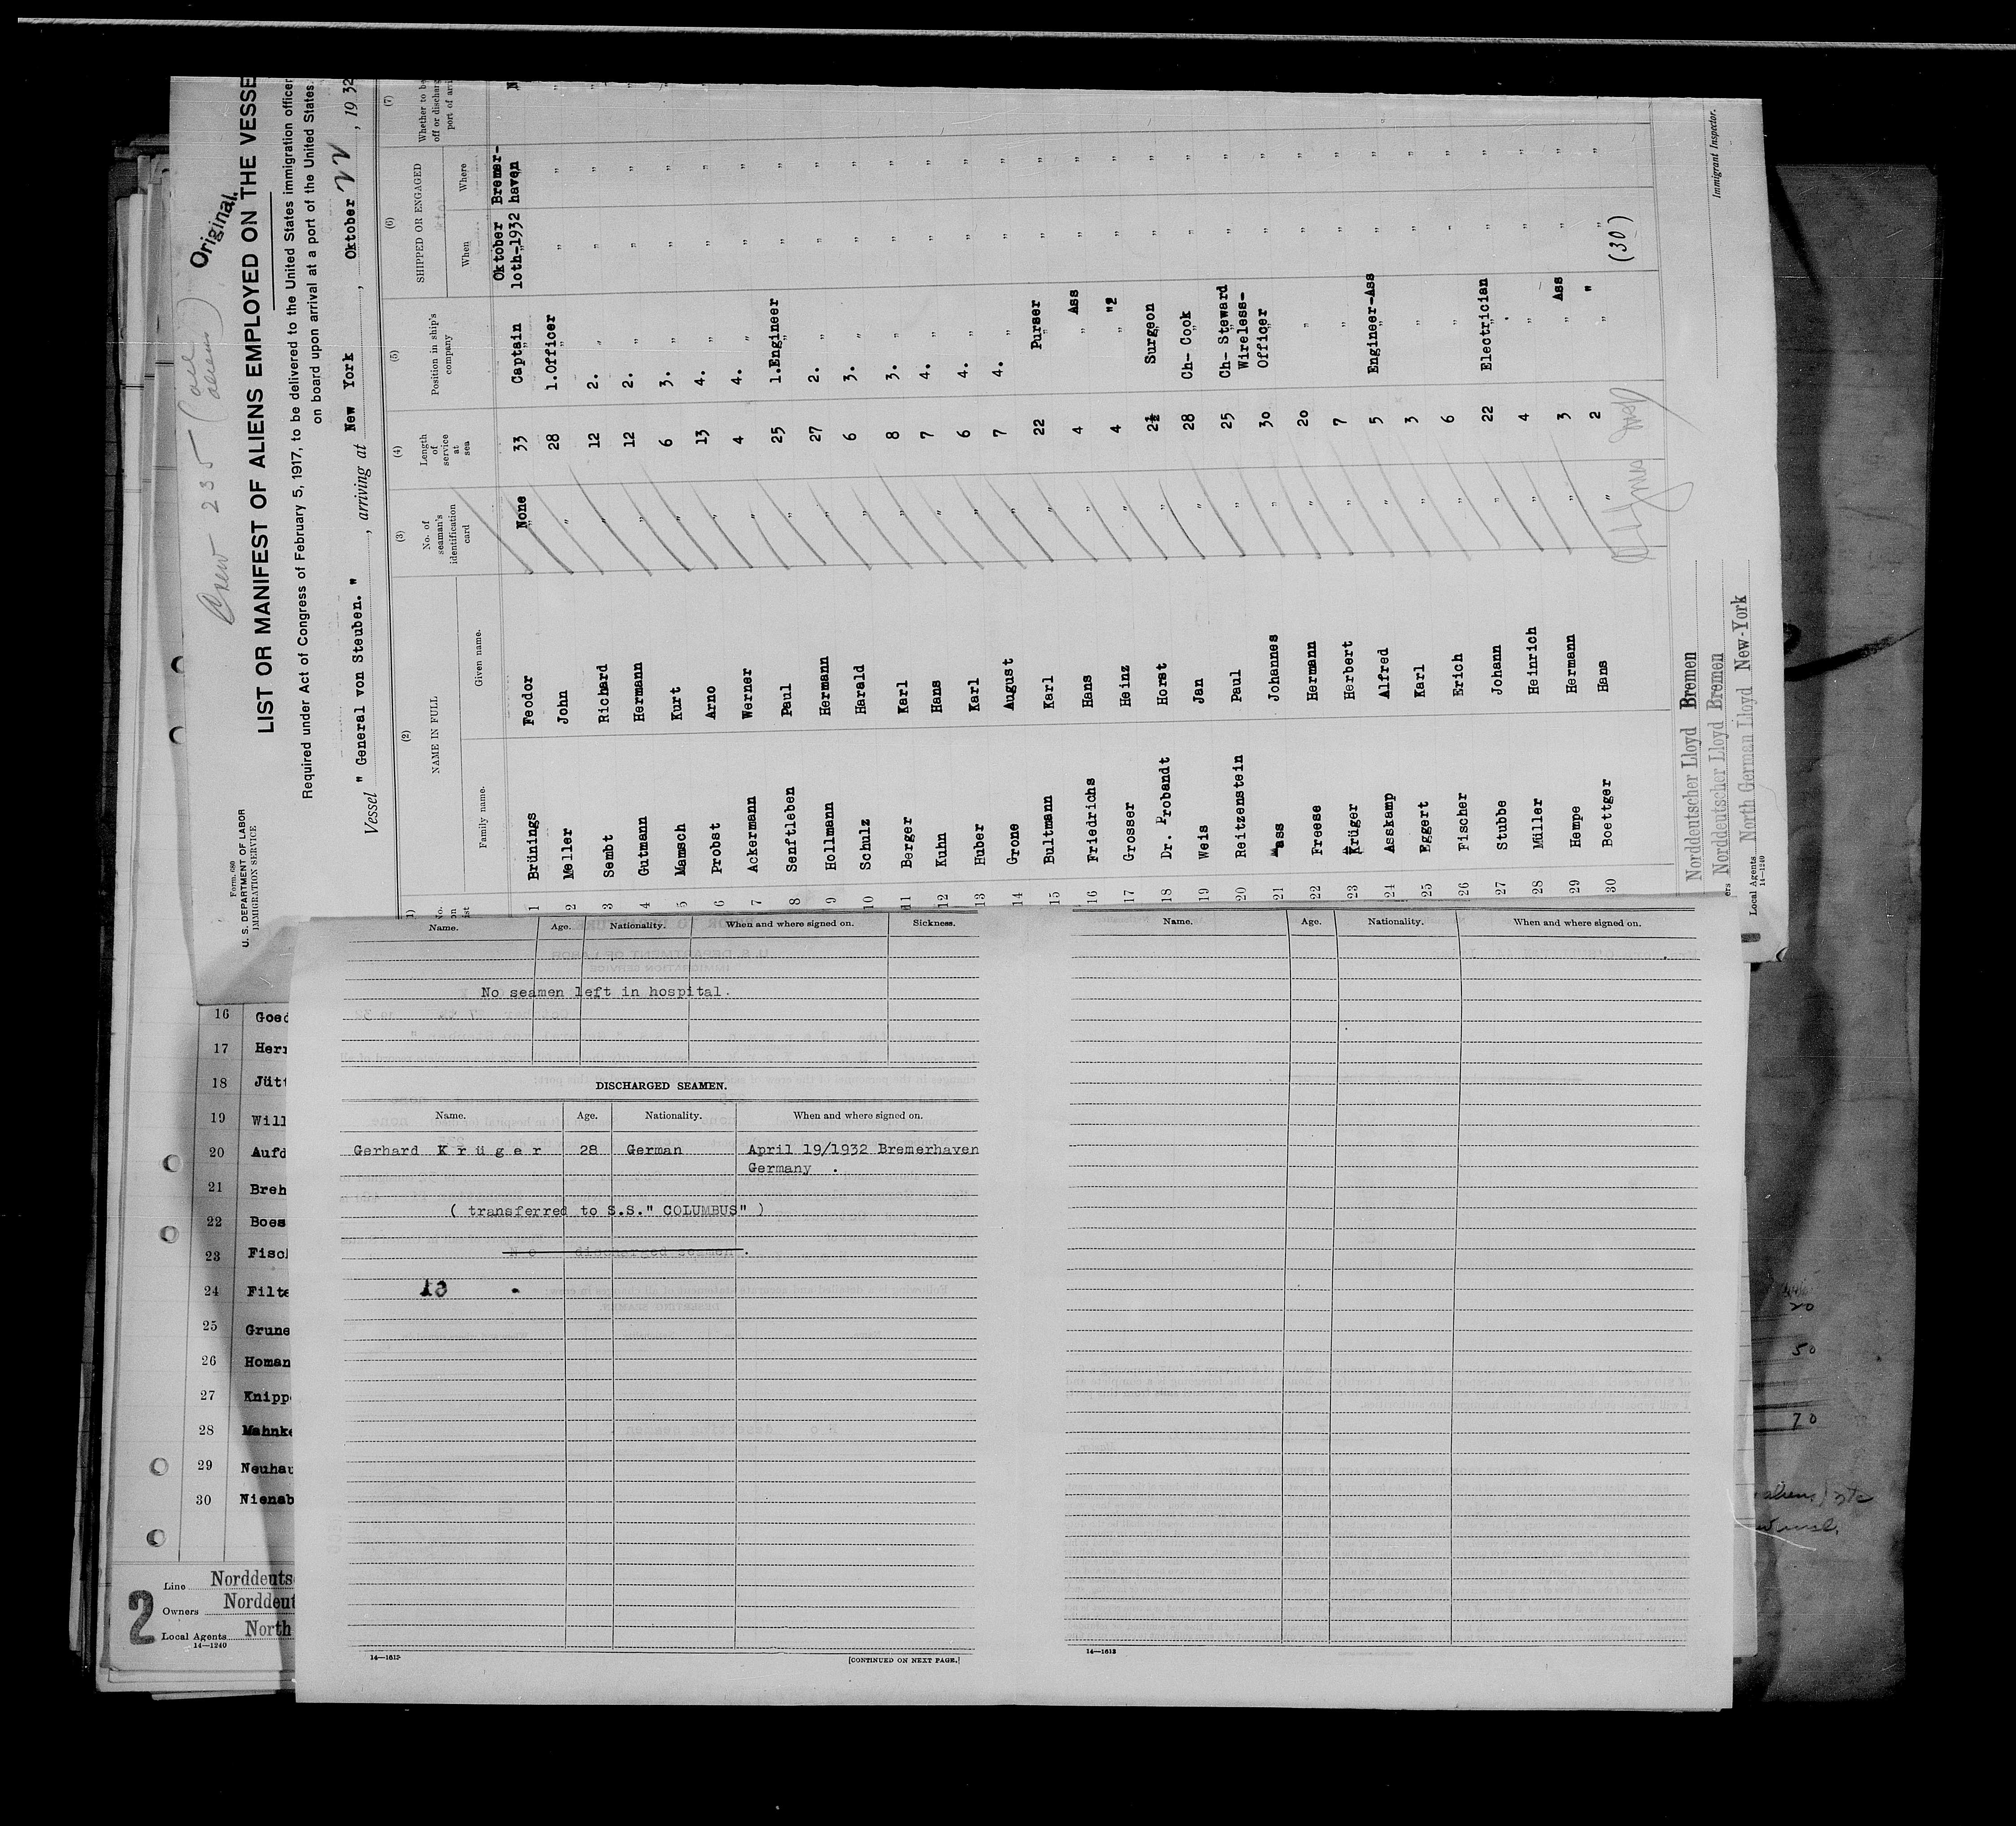 Original
Crew 235 (all aliens)
Form 680
U. S. DEPARTMENT OF LABOR
IMMIGRATION SERVICE
LIST OR MANIFEST OF ALIENS EMPLOYED ON THE VESSE
Required under Act of Congress of February 5, 1917, to be delivered to the United States immigration officer
on board upon arrival at a port of the United States.
Vessel " General von Steuben. " , arriving at New York , Oktober 22 , 19 32
(2) (3) (4) (5) (6) (7)
NAME IN FULL
Family name. Given name.
No. of seaman's identification card
Length of service at sea
Position in ship's company
SHIPPED OR ENGAGED
When Where
Whether to be
off or discharg
port of arri
Oktober Bremer-
1 Brünings Feodor None 33 Captain loth-1932 haven N
2 Meller John " 28 1.Officer " " "
3 Sembt Richard " 12 2. " " " "
4 Gutmann Hermann " 12 2. " " " "
5 Mamsch Kurt " 6 3. " " " "
6 Probst Arno " 13 4. " " " "
7 Ackermann Werner " 4 4. " " "
8 Senftleben Paul " 25 1.Engineer " "
9 Hollmann Hermann " 27 2. " " "
10 Schulz Harald " 6 3. " " "
11 Berger Karl " 8 3. " " "
12 Kuhn Hans " 7 4. " " "
13 Huber Karl " 6 4. " " "
14 Grone August " 7 4. " " "
15 Bultmann Karl " 22 Purser " "
16 Friedrichs Hans " 4 " Ass " "
17 Grosser Heinz " 4 " "2 " "
18 Dr. Probandt Horst " 2½ Surgeon " "
19 Weis Jan " 28 Ch- Cook " "
20 Reitzenstein Paul " 25 Ch- Steward " "
Wireless-
21 Maass Johannes " 30 Officer " "
22 Freese Hermann " 20 " " "
23 Krüger Herbert " 7 " " "
24 Asskamp Alfred " 5 Engineer-Ass " "
25 Eggert Karl " 3 " " "
26 Fischer Erich " 6 " " "
27 Stubbe Johann " 22 Electrician " "
28 Müller Heinrich " 4 " " "
29 Hempe Hermann " 3 " Ass " "
30 Boettger Hans " 2 " " " "
(30)
Norddeutscher Lloyd Bremen
ers Norddeutscher Lloyd Bremen
Local Agents North German Lloyd New-York
14—1240
Immigrant Inspector.
Name. Age. Nationality. When and where signed on. Sickness.
No seamen left in hospital.
DISCHARGED SEAMEN.
Name. Age. Nationality. When and where signed on.
Gerhard K r ü g e r 28 German April 19/1932 Bremerhaven
Germany .
( transferred to S.S." COLUMBUS" )
N o discharged seamen .
13
14—1613
[CONTINUED ON NEXT PAGE.]
Name. Age. Nationality. When and where signed on.
14—1613
16 Goed
17 Herr
18 Jütt
19 Will
20 Aufd
21 Breh
22 Boes
23 Fisch
24 Filte
25 Grune
26 Homan
27 Knipp
28 Mahnke
29 Neuhau
30 Nienab
2
Line Norddeuts
Owners Norddeut
Local Agents North
14—1240
20
50
70